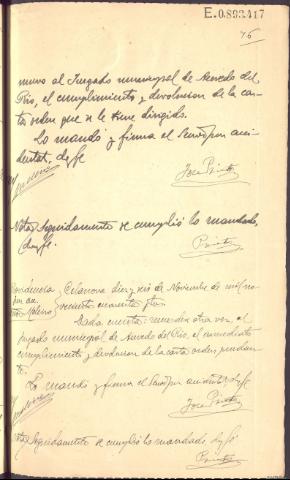 E.0.893.417
76
mero al Juzgado municipal de Acevedo del
Rio, el cumplimiento y devolucion de la car-
ta orden que se le tiene dirigida.
Lo mandó y firma el Señor juez acci-
dental, doy fe
Jose Prieto
Nota, Seguidamente se cumplió lo mandado,
doy fe.
Prieto
Providencia
Celanova diez y seis de Noviembre de mil no-
vecientos cuarenta y
Dada cuenta: recuerdese otra vez, al
juzgado municipal de Acevedo del Rio, el inmediato
cumplimiento y devolucion de la carta orden, pendien-
te.
Lo mandó y firma el Señor juez accidental, doy fe
Jose Prieto
Nota, Seguidamente se cumplió lo mandado, doy fe
Prieto